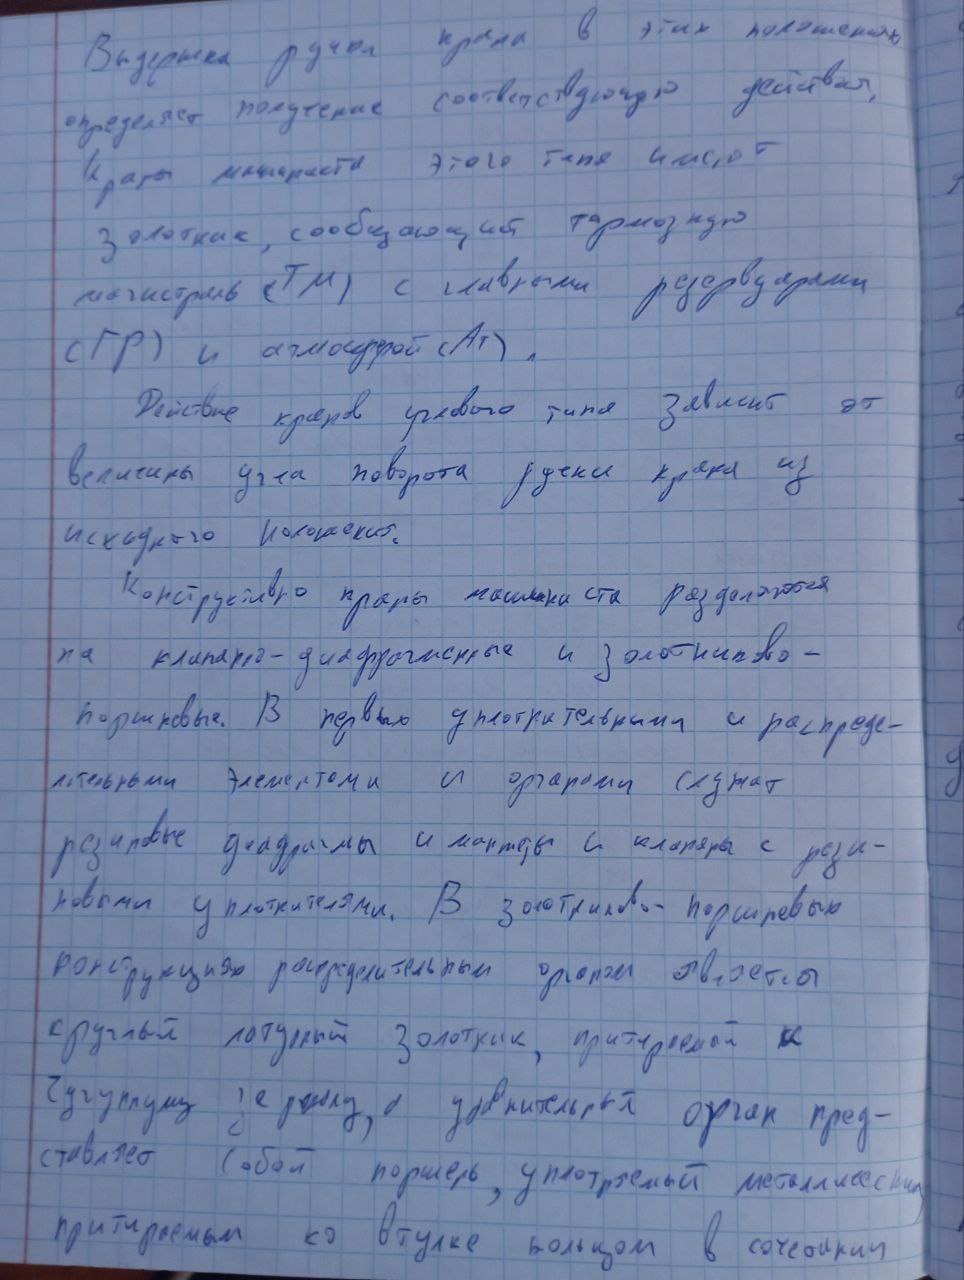 Выдержка ручки крана в этих положениях
определяет получение соответствующего действия,
Краны машиниста этого типа имеют
золотник, сообщающий тормозную
магистраль (ТМ) с главными резервуарами
(ГР) и атмосферой (Ат).
Действие кранов углового типа зависит от
величины угла поворота ручки крана из
исходного положения.
Конструктивно краны машиниста разделяются
на клапанно-диафрагменные и золотниково-
поршневые. В первых уплотнительными и распреде-
лительными элементами и органами служат
резиновые диафрагмы и манжеты и клапаны с рези-
новыми уплотнителями. В золотниково-поршневых
конструкциях распределительным органом является
круглый латунный золотник, притираемый к
чугунному зеркалу, а уравнительный орган пред-
ставляет собой поршень, уплотняемый металлическим
притираемым ко втулке кольцом в сочетании